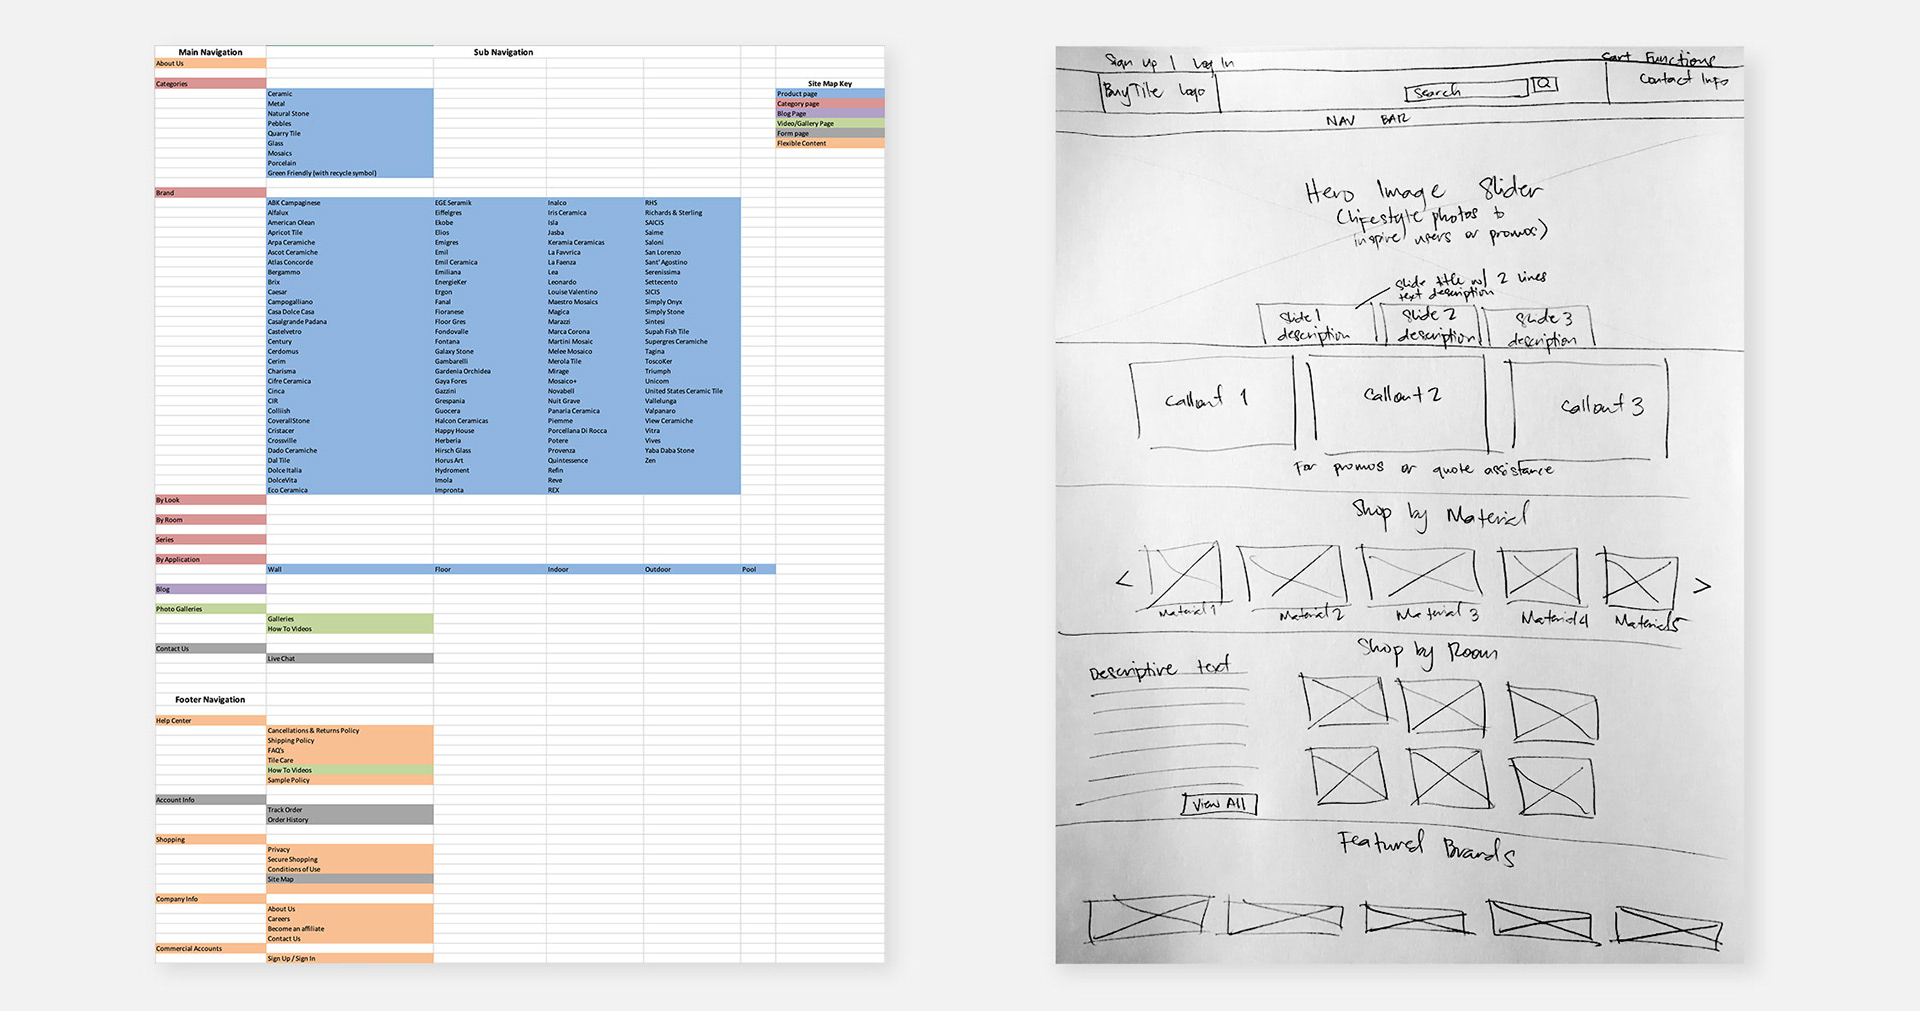 Main Navigation
Sub Navigation
About Us
Categories
Ceramic
Metal
Natural Stone
Pebbles
Quarry Tile
Glass
Mosaics
Porcelain
Green Friendly (with recycle symbol)
Site Map Key
Product page
Category page
Blog Page
Video/Gallery Page
Form page
Flexible Content
Brand
ABK Campaginese EGE Seramik Inalco RHS
Alfalux Eiffelgres Iris Ceramica Richards & Sterling
American Olean Ekobe Isla SAICIS
Apricot Tile Elios Jasba Saime
Arpa Ceramiche Emigres Keramia Ceramicas Saloni
Ascot Ceramiche Emil La Favvrica San Lorenzo
Atlas Concorde Emil Ceramica La Faenza Sant' Agostino
Bergammo Emiliana Lea Serenissima
Brix EnergieKer Leonardo Settecento
Caesar Ergon Louise Valentino SICIS
Campogalliano Fanal Maestro Mosaics Simply Onyx
Casa Dolce Casa Fioranese Magica Simply Stone
Casalgrande Padana Floor Gres Marazzi Sintesi
Castelvetro Fondovalle Marca Corona Supah Fish Tile
Century Fontana Martini Mosaic Supergres Ceramiche
Cerdomus Galaxy Stone Melee Mosaico Tagina
Cerim Gambarelli Merola Tile ToscoKer
Charisma Gardenia Orchidea Mirage Triumph
Cifre Ceramica Gaya Fores Mosaico+ Unicom
Cinca Gazzini Novabell United States Ceramic Tile
CIR Grespania Nuit Grave Vallelunga
Colliish Guocera Panaria Ceramica Valpanaro
CoverallStone Halcon Ceramicas Piemme View Ceramiche
Cristacer Happy House Porcellana Di Rocca Vitra
Crossville Herberia Potere Vives
Dado Ceramiche Hirsch Glass Provenza Yaba Daba Stone
Dal Tile Horus Art Quintessence Zen
Dolce Italia Hydroment Refin
DolceVita Imola Reve
Eco Ceramica Impronta REX
By Look
By Room
Series
By Application
Wall Floor Indoor Outdoor Pool
Blog
Photo Galleries
Galleries
How To Videos
Contact Us
Live Chat
Footer Navigation
Help Center
Cancellations & Returns Policy
Shipping Policy
FAQ's
Tile Care
How To Videos
Sample Policy
Account Info
Track Order
Order History
Shopping
Privacy
Secure Shopping
Conditions of Use
Site Map
Company Info
About Us
Careers
Become an affiliate
Contact Us
Commercial Accounts
Sign Up / Sign In
Sign Up | Log In
Cart Functions
BuyTile Logo
Search
Contact Info
NAV BAR
Hero Image Slider
(lifestyle photos to
inspire users or promos)
slide title w/ 2 lines
text description
Slide 1
description
Slide 2
description
Slide 3
description
Callout 1
Callout 2
Callout 3
For promos or quote assistance
Shop by Material
< >
Material 1 Material 2 Material 3 Material 4 Material 5
Shop by Room
Descriptive text
View All
Featured Brands